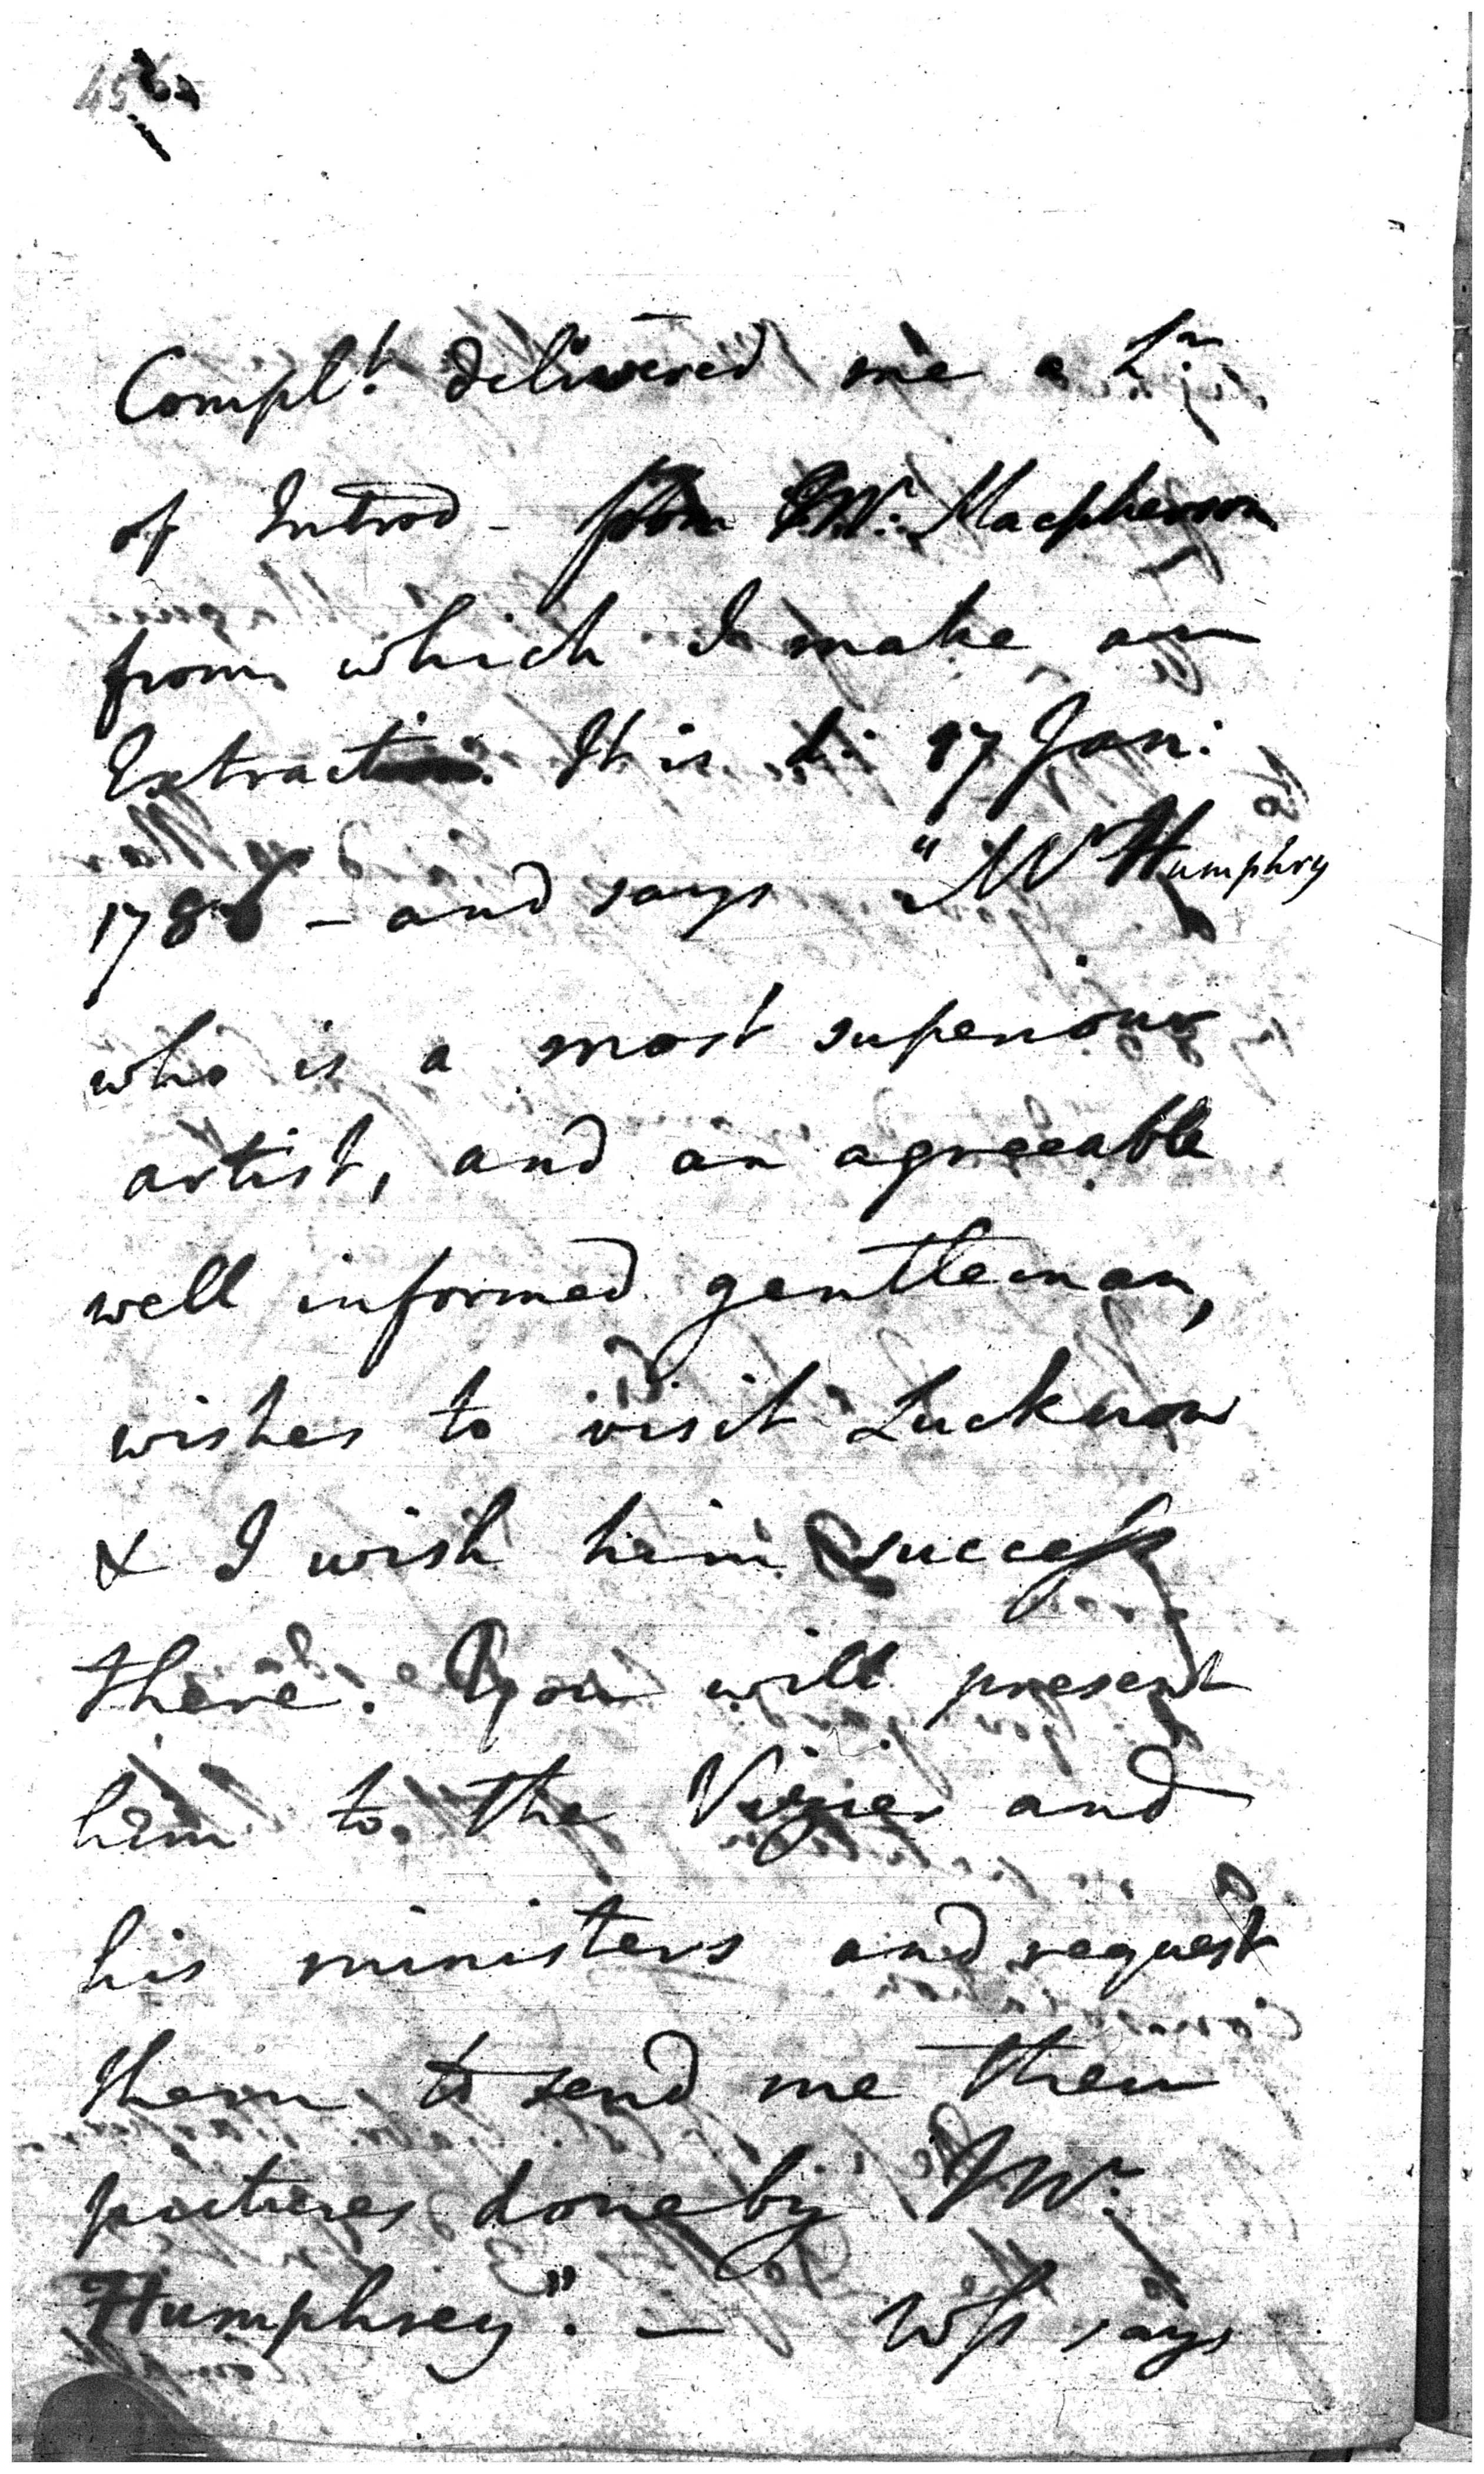 Complt. delivered me a Lr.
of Introd - from Mr. Macpherson
from which I make an
Extract. It is d: 17 Jan:
1786 - and says "Mr Humphry
who is a most superiour
artist, and an agreeable
well informed gentleman,
wishes to visit Lucknow
& I wish him success
there. You will present
him to the Vizier and
his ministers and request
them to send me their
pictures done by Mr.
Humphrey". - Wss says